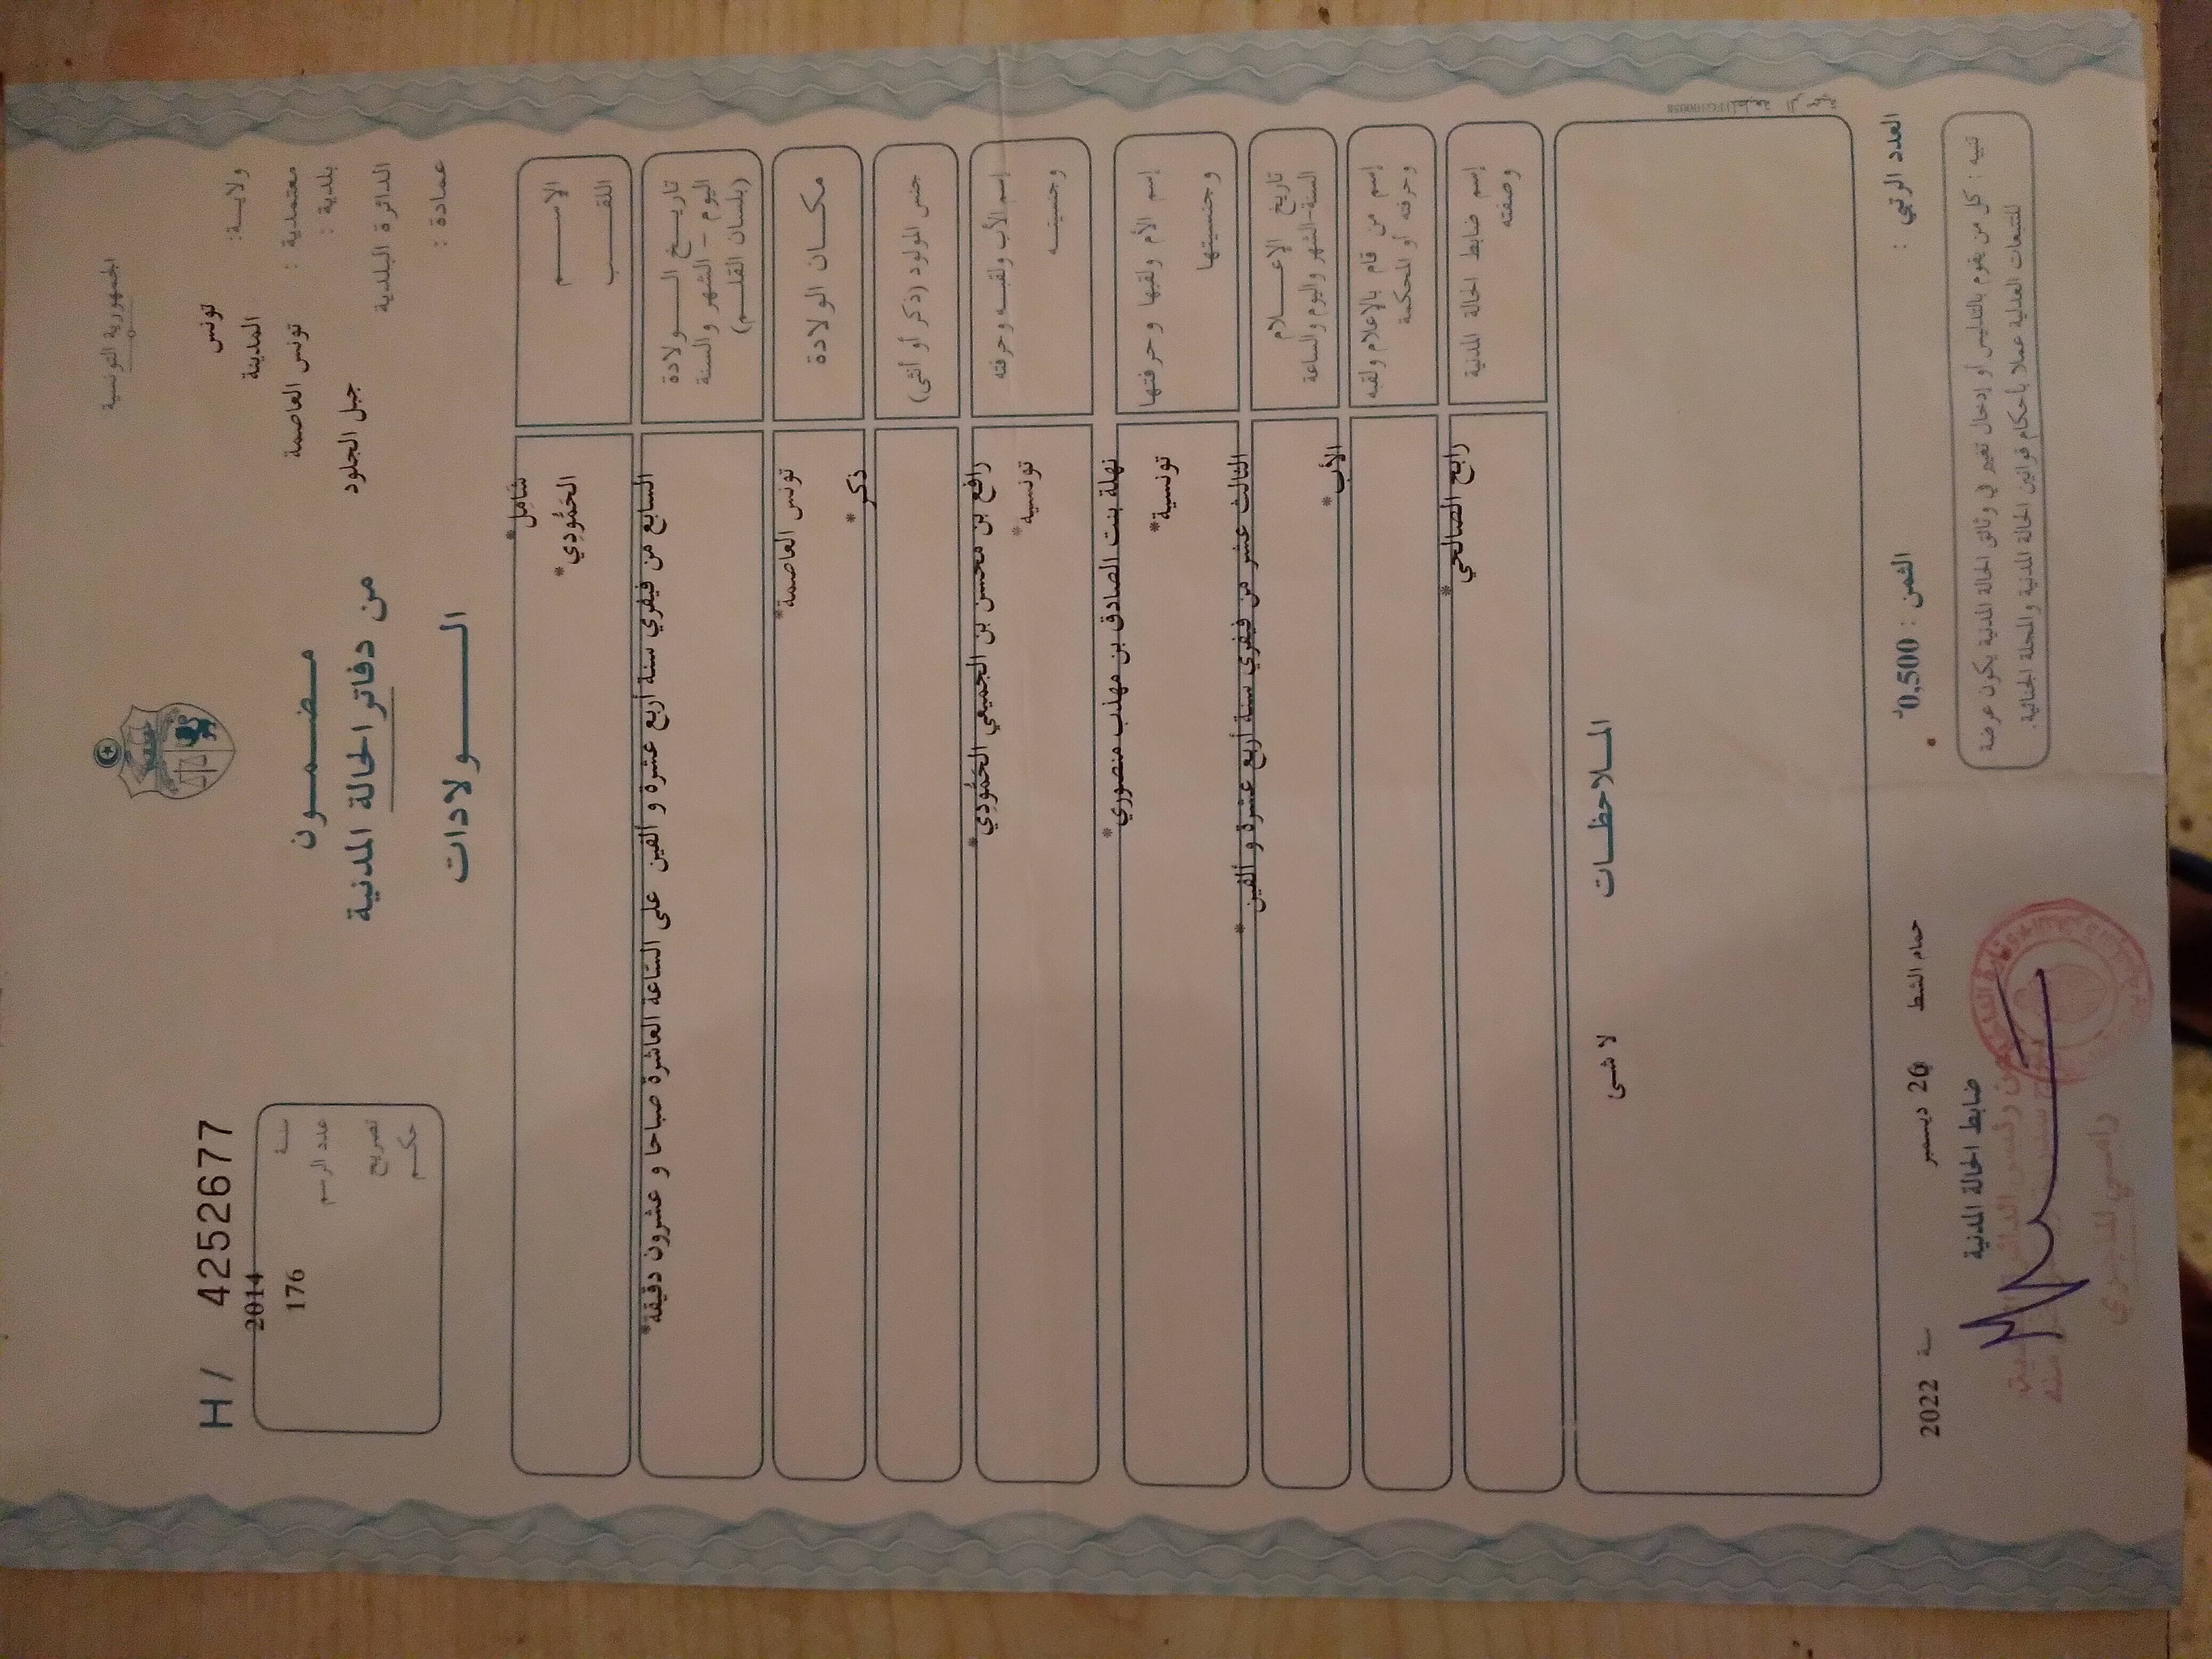 الجمهورية التونسية
ولايـة: تونس
معتمدية : المدينة
بلدية : تونس العاصمة
الدائرة البلدية جبل الجلود
عمادة :
H / 4252677
سنة 2014
عدد الرسم 176
تصريح
حكم
مضمـــون
من دفاتر الحالة المدنية
الـــــولادات
الإســـم شامل*
اللقـــب الحَمُّودِي*
تاريـــخ الـــــولادة
اليوم - الشهر والسنة
(بلسان القلـــم)
السابع من فيفري سنة أربع عشرة و ألفين على الساعة العاشرة صباحا و عشرون دقيقة*
مكـــان الولادة تونس العاصمة*
جنس المولود (ذكر أو أنثى) ذكر*
إسم الأب ولقبـه وحرفته رافع بن محسن بن الجميعي الحَمُّودِي*
وجنسيتـــه تونسية*
إسم الأم ولقبها وحرفتها نهلة بنت الصادق بن مهذب منصوري*
وجنسيتها تونسية*
تاريخ الإعـــلام
السنة-الشهر واليوم والساعة
الثالث عشر من فيفري سنة أربع عشرة و ألفين*
إسم من قام بالإعلام ولقبه
وحرفته أو المحكمة
الأب*
إسم ضابط الحالة المدنية
وصفته
رابح الصالحي*
المـــلاحظـــات
لا شئ
العدد الرتبي :
الثمن : 0,500د
حمام الشط 26 ديسمبر سنة 2022
تنبيه : كل من يقوم بالتدليس أو إدخال تغيير في وثائق الحالة المدنية يكون عرضة
للتتبعات العدلية عملا بأحكام قوانين الحالة المدنية والمجلة الجنائية.
ضابط الحالة المدنية
رامـــي الماجـري